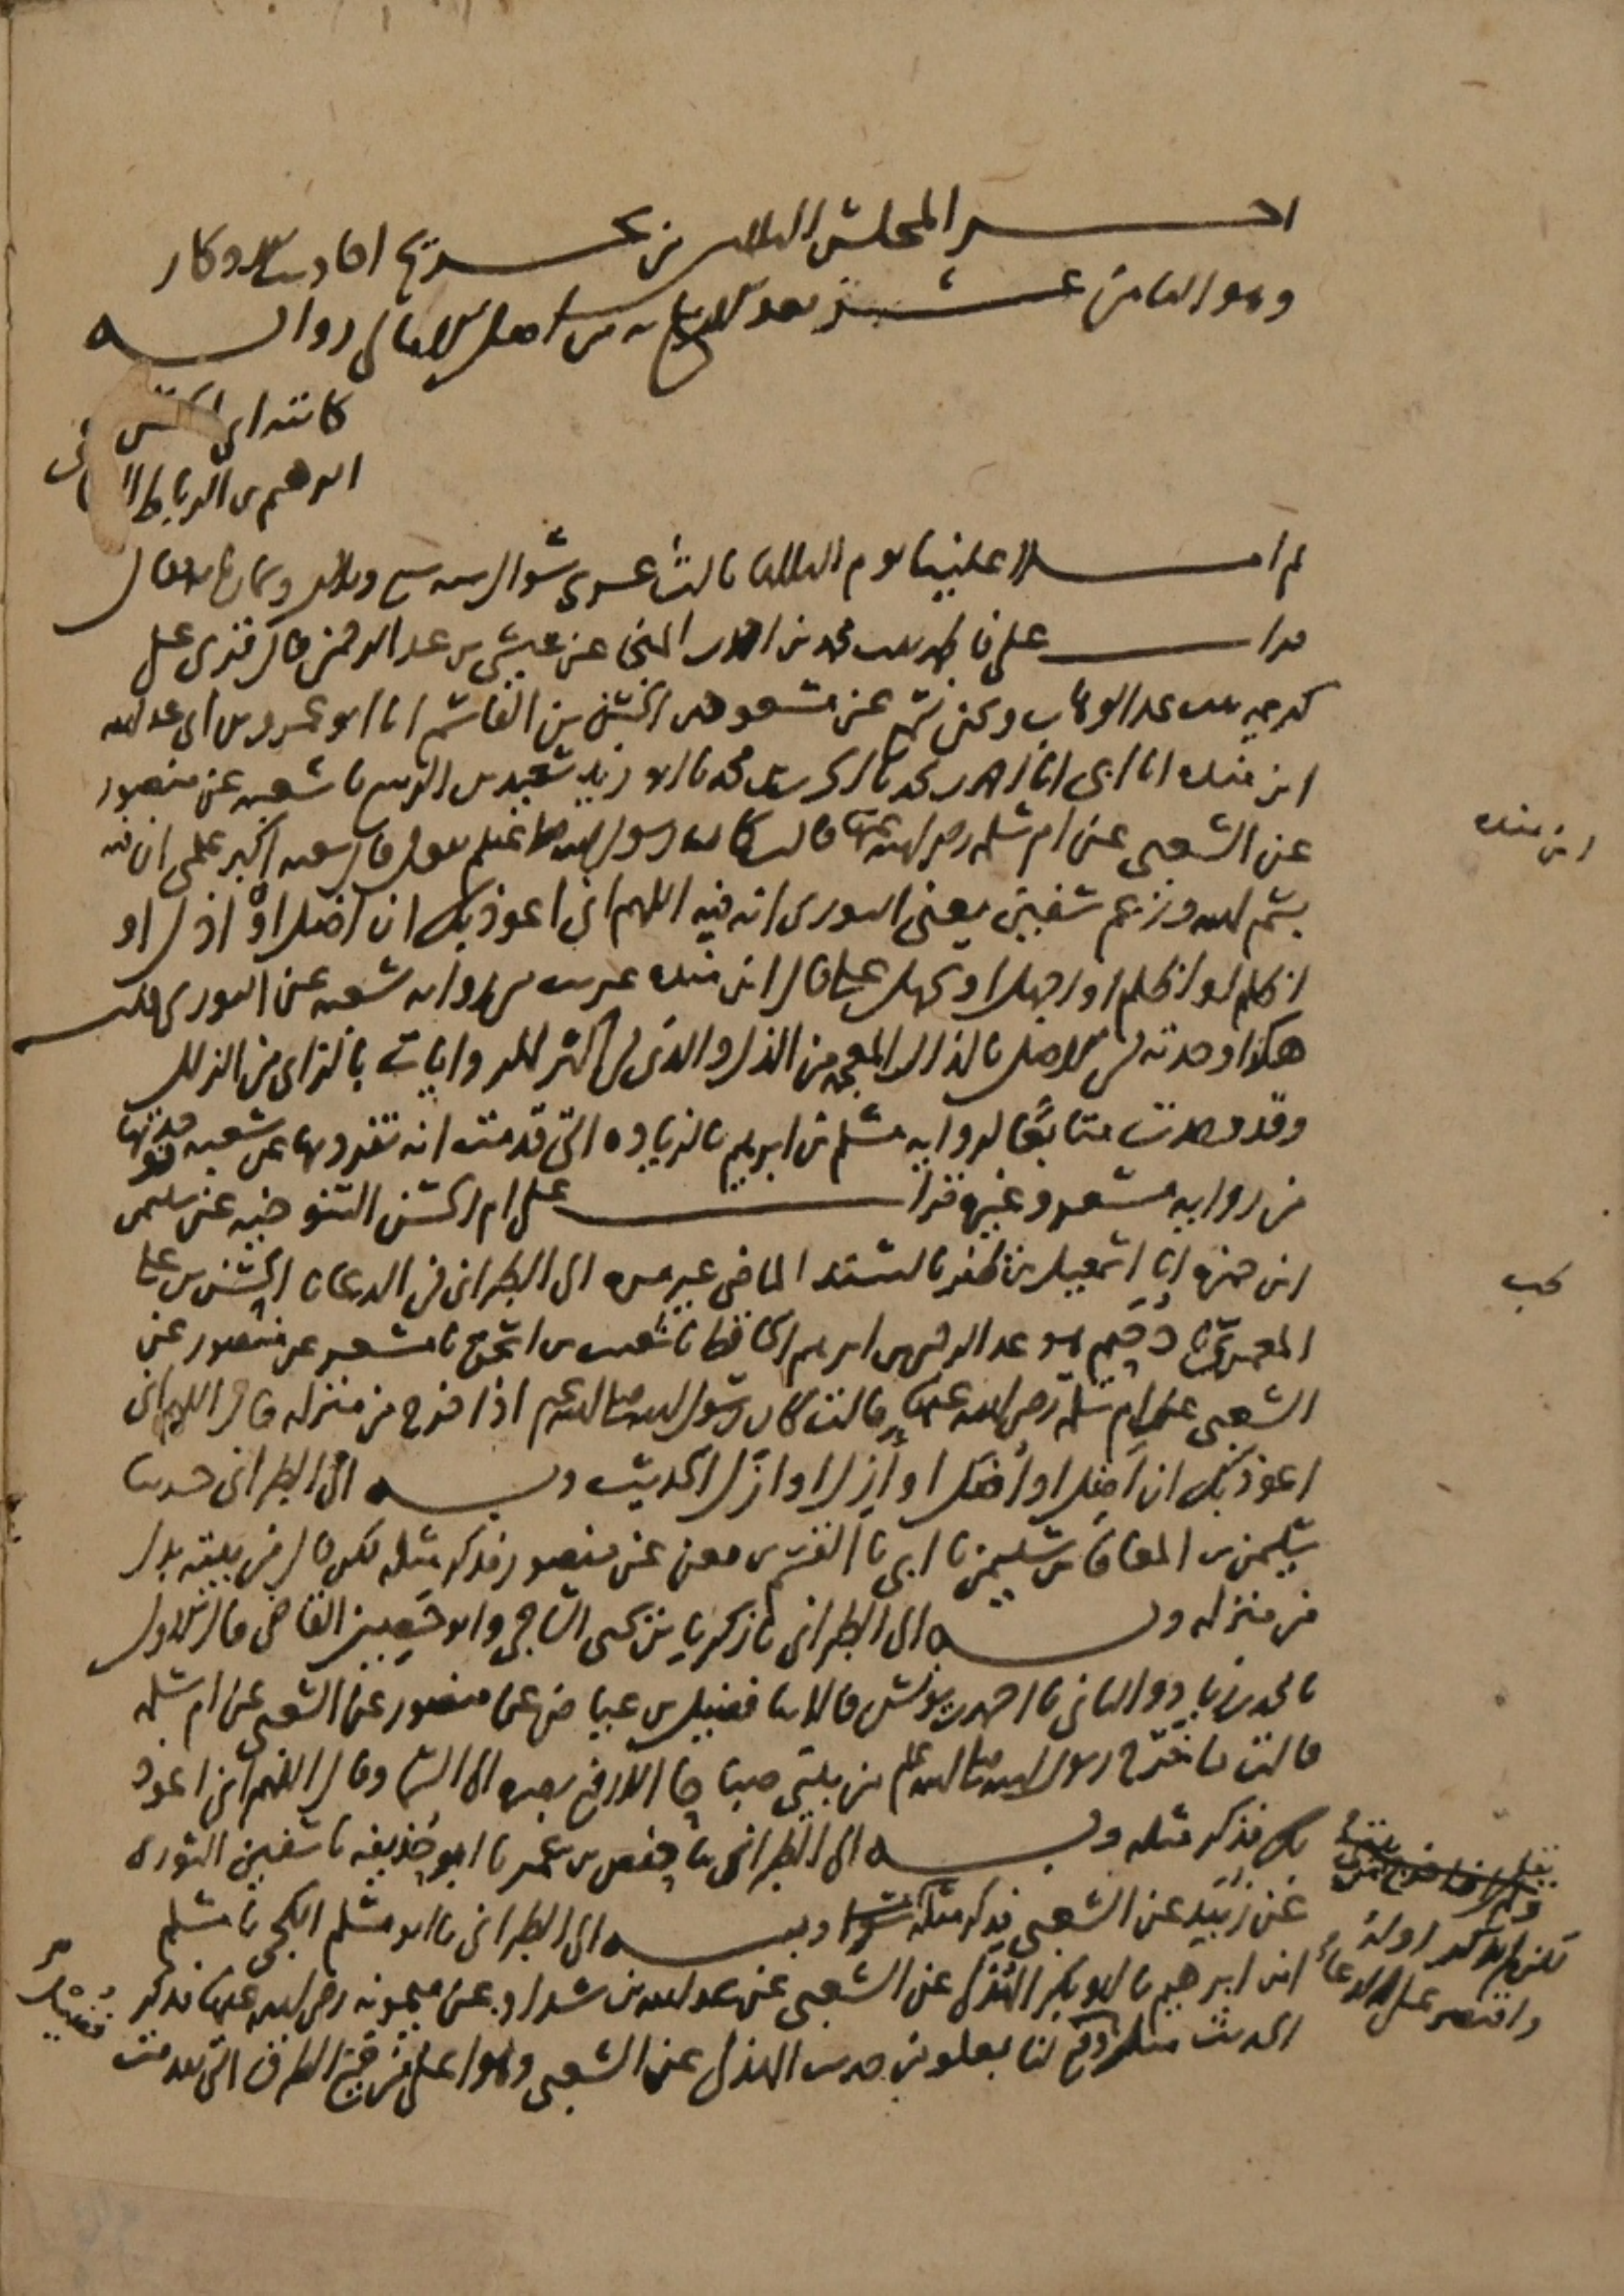 آخر المجلس الثلاثين من تخريج أحاديث الأذكار
وهو الثامن عشر بعد الأربعمائة من أصل الأمالي رواية
كاتبه أبي الحسن
إبرهيم بن الرباط
ثم أملا علينا يوم الثلاثا ثالث عشري شوال سنة سبع وثلاثين وثمانمائة فقال
قرأت على فاطمة بنت محمد بن أحمد بن المنجا عن عيسى بن عبد الرحمن قال قرئ على
كريمة بنت عبد الوهاب ونحن نسمع عن مسعود بن الحسن بن القاسم أنا أبو عمرو بن أبي عبد الله
ابن منده أنا أبي أنا أحمد بن محمد نا الحرث بن محمد نا أبو زيد سعيد بن الربيع نا شعبة عن منصور
عن الشعبي عن أم سلمة رضي الله عنها قالت كان رسول الله صلى الله عليه وسلم يقول قال شعبة أكبر علمي أن فيه
بسم الله وزعم سفين يعني الثوري أنه فيه اللهم إني أعوذ بك أن أضل أو أذل أو
أظلم أو أظلم أو أجهل أو يجهل علي قال ابن منده غريب من رواية شعبة عن الثوري قلت
هكذا وجدته في الأصل بالذال المعجمة من الذل والذي في أكثر الروايات بالزاي من الزلل
وقد وجدت متابعا لرواية مسلم بن إبرهيم بالزيادة التي قدمت أنه تفرد بها عن شعبة
من رواية مسعر وغيره قرأت على أم الحسن التنوخية عن سليمن
ابن حمزة أنا إسمعيل بن ظفر بالسند الماضي غير مرة إلى الطبراني في الدعا نا الحسن بن علي
المعمري نا دحيم هو عبد الرحمن بن إبرهيم الحافظ نا شعيب بن إسحق نا مسعر عن منصور عن
الشعبي عن أم سلمة رضي الله عنها قالت كان رسول الله صلى الله عليه وسلم إذا خرج من منزله قال اللهم إني
أعوذ بك أن أضل أو أضل أو أزل أو أزل الحديث وبه إلى الطبراني حدثنا
سليمن بن المعافا بن سليمن نا أبي نا القسم بن معن عن منصور فذكر مثله لكن قال من بيته بدل
من منزله وبه إلى الطبراني نا زكريا بن يحيى الساجي وأبو حصين القاضي قال الأول
نا محمد بن زياد والثاني نا أحمد بن يونس قالا نا فضيل بن عياض عن منصور عن الشعبي عن أم سلمة
قالت ما خرج رسول الله صلى الله عليه وسلم من بيتي صباحا إلا رفع بصره إلى السما وقال اللهم إني أعوذ
بك فذكر مثله وبه إلى الطبراني نا حفص بن عمر نا أبو حذيفة نا سفين الثوري
عن زبيد عن الشعبي فذكر مثله وبه إلى الطبراني نا أبو مسلم الكجي نا مسلم
ابن إبرهيم نا أبو بكر الهذلي عن الشعبي عن عبد الله بن شداد عن ميمونة رضي الله عنها فذكر
الحديث مثله وقع لنا بعلو من حديث الهذلي عن الشعبي وهو أعلى من جميع الطرق التي تقدمت
ابن منده
لكن لم يذكر أوله
واقتصر على الدعاء